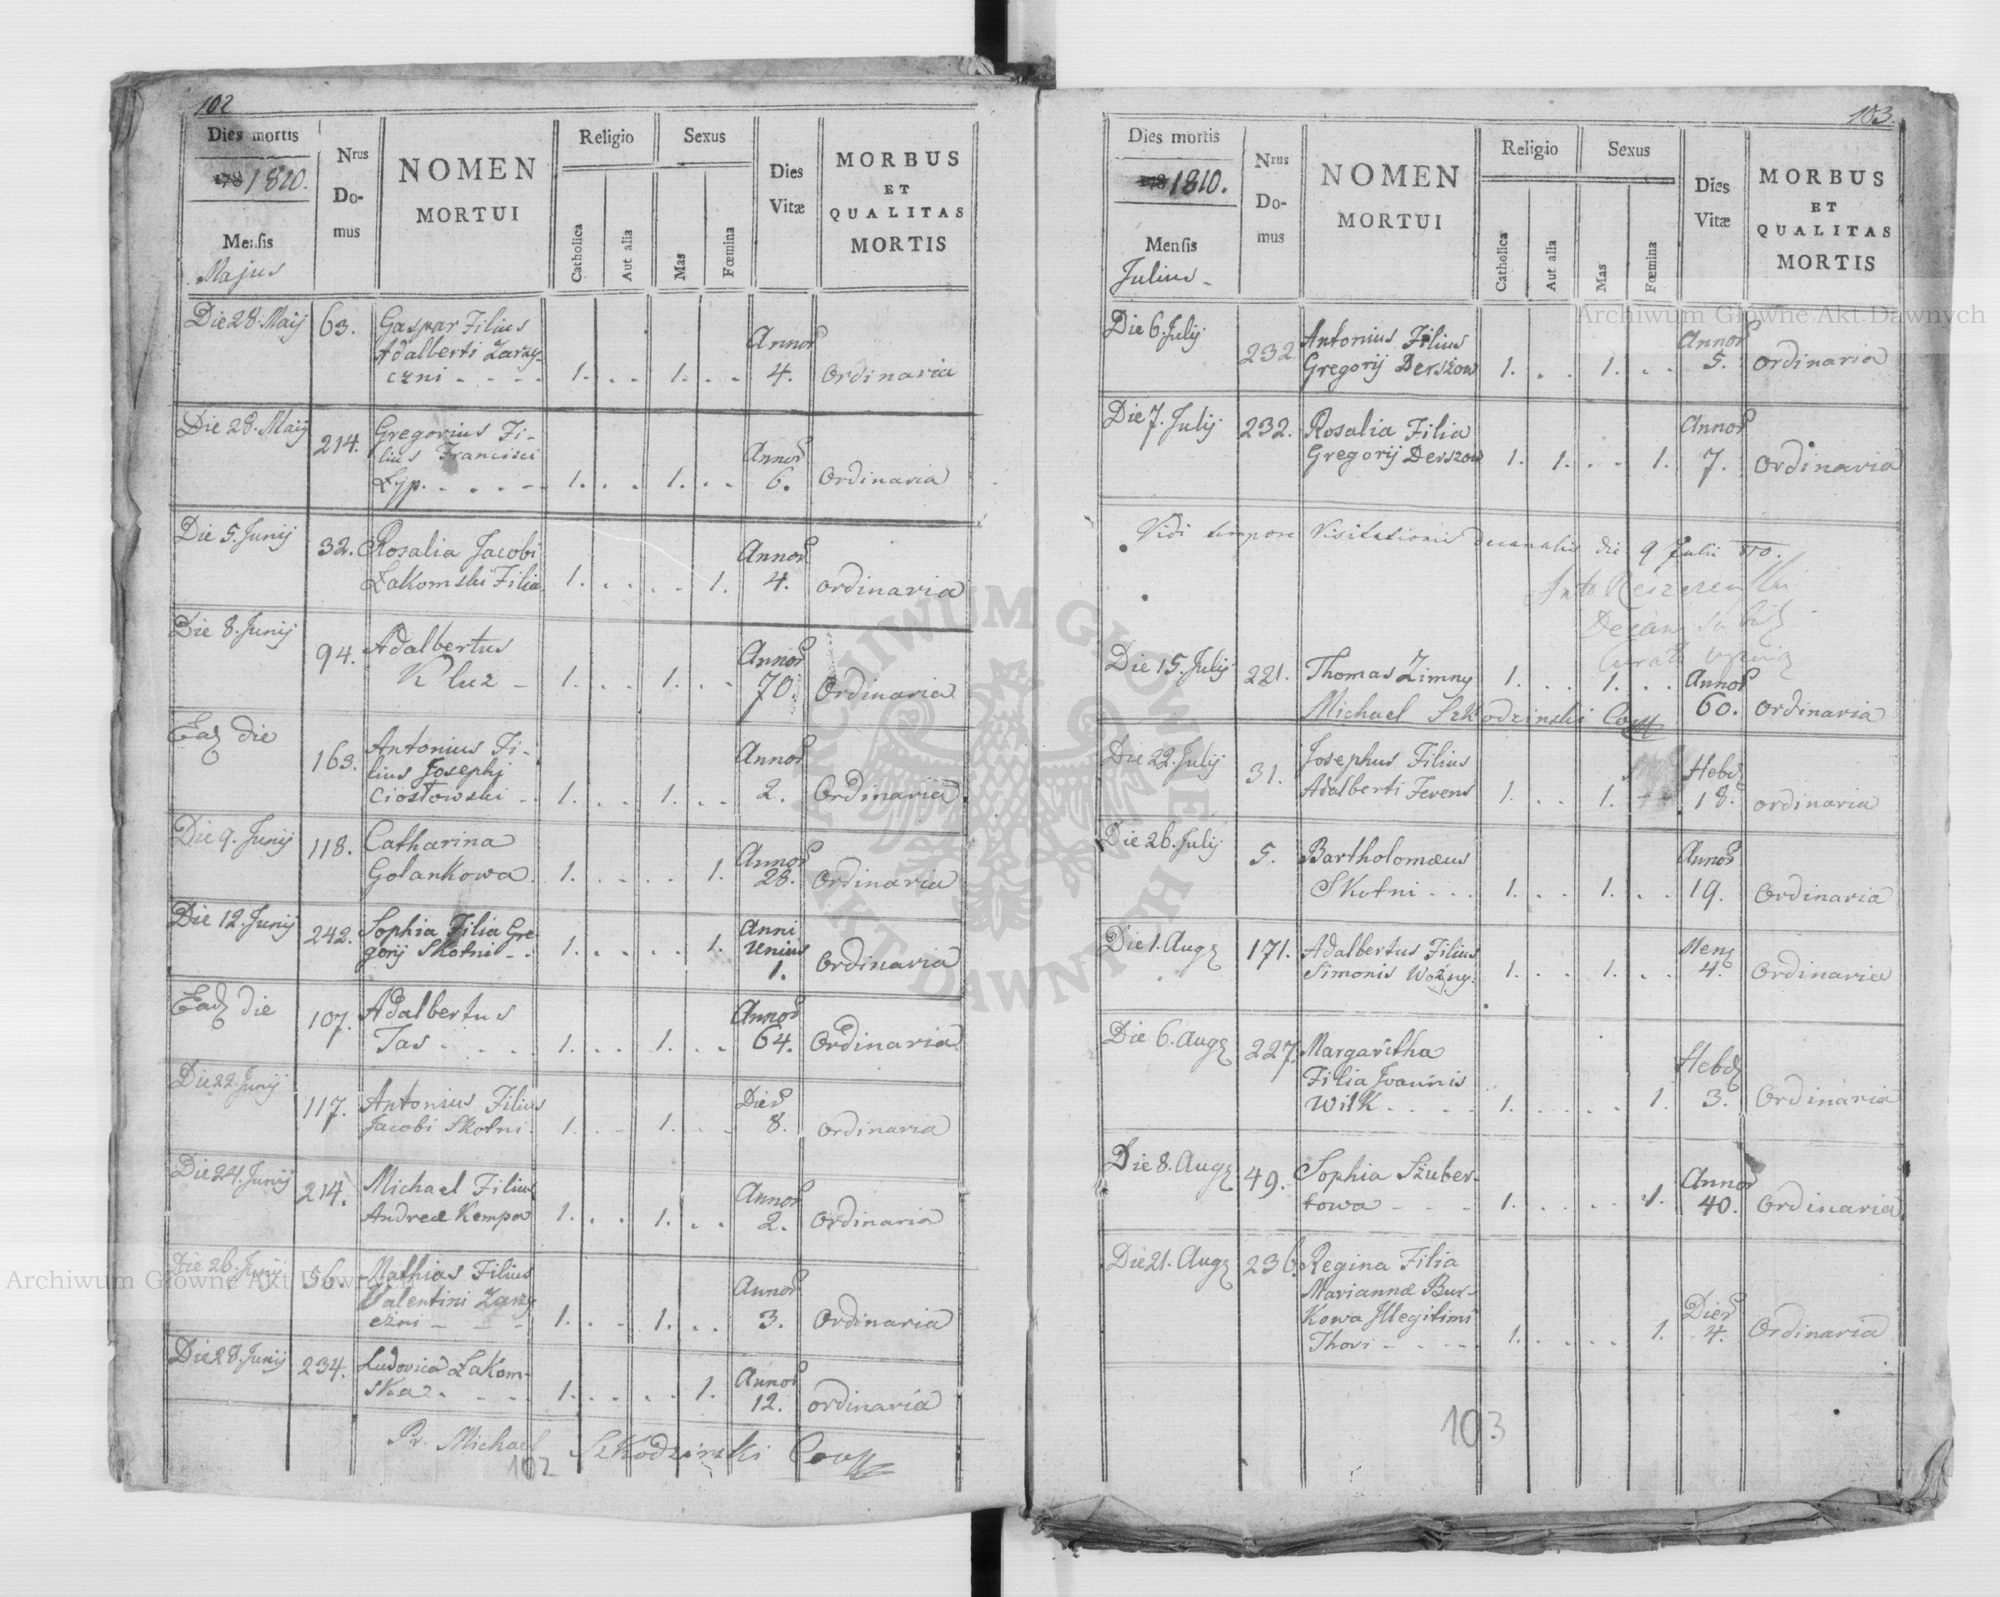 102
Dies mortis
1810.
Mensis
Majus
Nrus
Do-
mus
NOMEN
MORTUI
Religio
Catholica
Aut alia
Sexus
Mas
Fœmina
Dies
Vitæ
MORBUS
ET
QUALITAS
MORTIS
Die 28. Maij 63. Gaspar Filius
Adalberti Zarzy- Annor
czni - - - - 1. . . 1. . . 4. Ordinaria
Die 28. Maij 214. Gregorius Fi-
lius Francisci Annor
Łyp. - . . - - 1. . . 1. . . 6. Ordinaria
Die 5. Junij 32. Rosalia Jacobi Annor
Łakomski Filia 1. . . . . 1. 4. ordinaria
Die 8. Junij 94. Adalbertus Annor
Kluz - 1. . . 1. . - 70. Ordinaria
Ead die 163. Antonius Fi-
lius Josephi Annor
Ciosłowski - . 1. . . 1. . . 2. Ordinaria
Die 9. Junij 118. Catharina Annor
Golankowa. 1. . . . . 1. 28. Ordinaria
Die 12. Junij 242. Sophia Filia Gre- Anni
gorij Skotni - . 1. . . . . 1. unius
1. Ordinaria
Ead die 107. Adalbertus Annor
Tas - . . . 1. . . 1. . . 64. Ordinaria
Die 22. Junij 117. Antonius Filius Dier
Jacobi Skotni. 1. . - 1. . - 8. ordinaria
Die 24. Junij 214. Michael Filius Annor
Andreæ Kempa 1. . . 1. . . 2. Ordinaria
Die 26. Junij 56. Mathias Filius
Valentini Zarzy Annor
czni - - - 1. . . 1. . . 3. Ordinaria
Die 28. Junij 234. Ludovica Łakom- Annor
ska. - . - 1. . . . . 1. 12. ordinaria
Pr. Michael Szkodzinski
102
103.
Dies mortis
1810.
Mensis
Julius -
Nrus
Do-
mus
NOMEN
MORTUI
Religio
Catholica
Aut alia
Sexus
Mas
Fœmina
Dies
Vitæ
MORBUS
ET
QUALITAS
MORTIS
Die 6. Julij 232 Antonius Filius Annor
Gregorij Derszow 1. . . 1. . . 5. ordinaria
Die 7. Julij 232. Rosalia Filia Annor
Gregorij Derszow 1. 1. . . 1. 7. ordinaria
Vidi tempore Visitationis decanalis die 9 Julii
Die 15. Julij 221. Thomas Zimny 1. . . 1. . . Annor
Michael Szkodzinski 60. ordinaria
Die 22. Julij 31. Josephus Filius Hebd
Adalberti Ferens 1. . . 1. 18. ordinaria
Die 26. Julij 5. Bartholomæus Annor
Skotni - . . 1. . . 1. . . 19. Ordinaria
Die 1. Aug 171. Adalbertus Filius Mens
Simonis Woźny. 1. . . 1. . . 4. Ordinaria
Die 6. Aug 227. Margaritha
Filia Joannis Hebd
Wilk - . . . 1. . . . . 1. 3. Ordinaria
Die 8. Aug 49. Sophia Szuber- Annor
towa - - - 1. . . . . 1. 40. Ordinaria
Die 21. Aug 236. Regina Filia
Mariannæ Bur-
kowa Illegitimi Dier
Thori - . - - 1. . . . . 1. 4. Ordinaria
103
Archiwum Główne Akt Dawnych
Archiwum Główne Akt Dawnych
ARCHIWUM GŁÓWNE AKT DAWNYCH